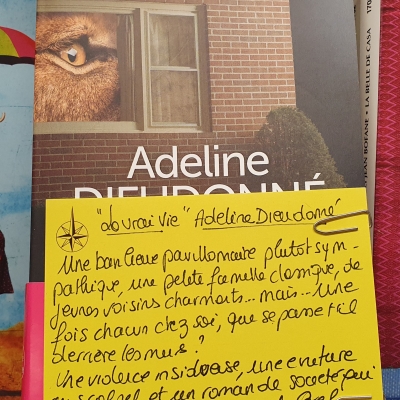 Adeline
DIEUDONNÉ
"La vraie vie" Adeline Dieudonné
Une banlieue pavillonnaire plutôt sym-
pathique, une petite famille classique, de
jeunes voisins charmants... mais... Une
fois chacun chez soi, que se passe t-il
derrière les murs ?
Une violence insidieuse, une écriture
au scalpel et un roman de société qui
JEAN BOFANE • LA BELLE DE CASA
170